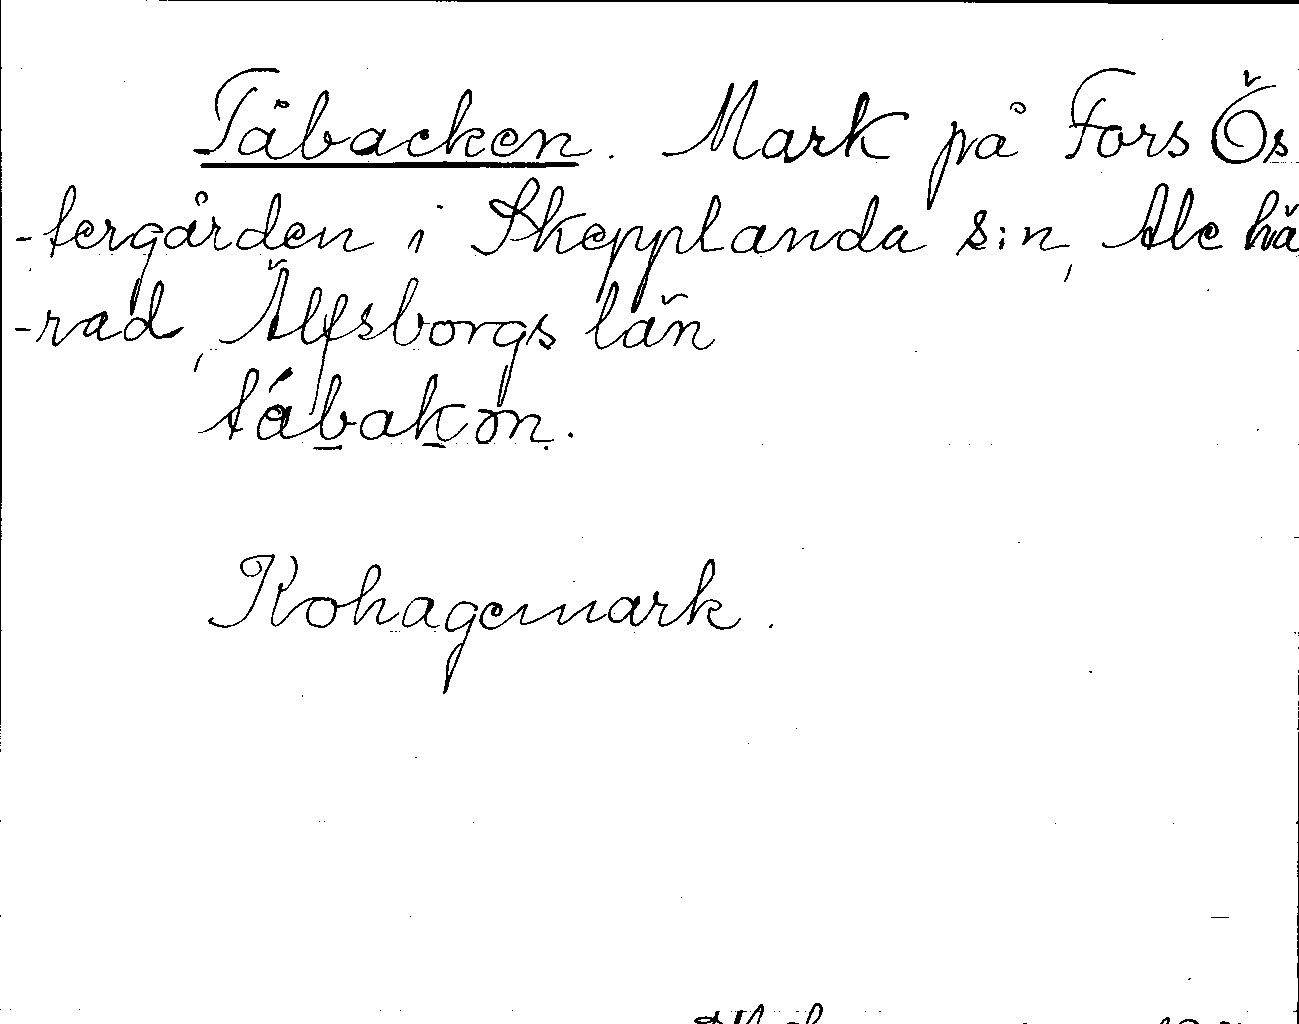 Tåbacken. Mark på Fors Ös
-tergården i Skepplanda s:n, Ale hä
-rad, Älfsborgs län
tábakən.
Kohagemark.